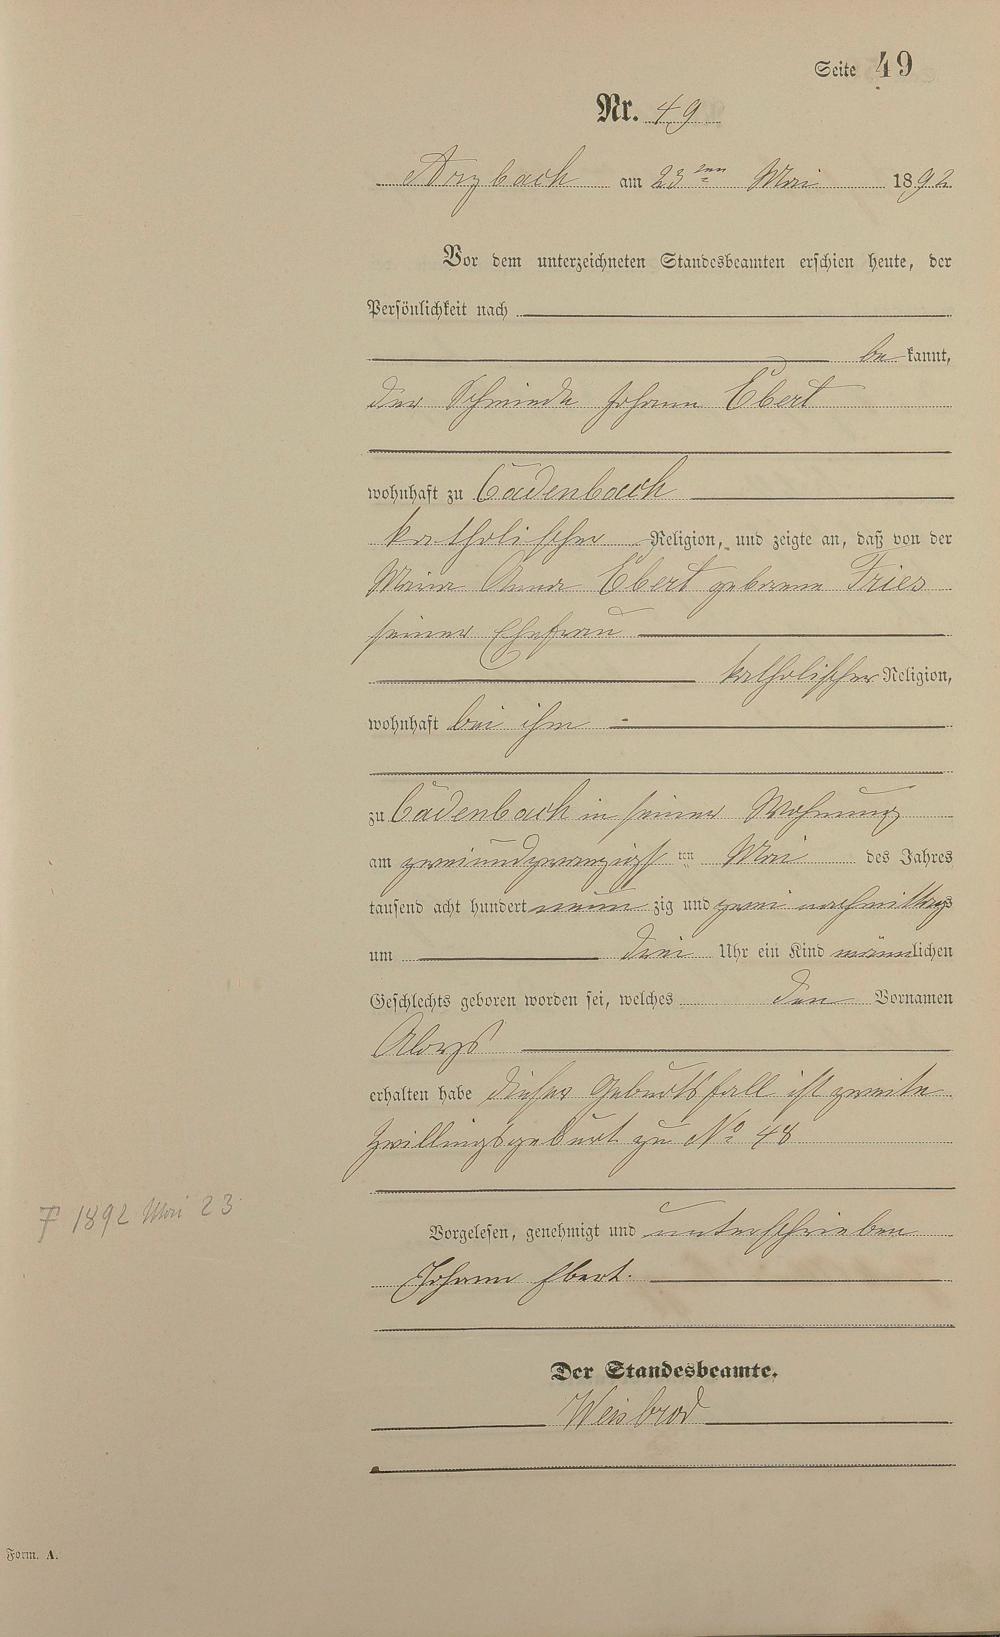 Seite 49
Nr. 49
Arzbach am 23ten Mai 1892
Vor dem unterzeichneten Standesbeamten erschien heute, der
Persönlichkeit nach
bekannt,
der Schmiede Johann Ebert
wohnhaft zu Cadenbach
katholischer Religion, und zeigte an, daß von der
Maria Anna Ebert geborene Fries
seiner Ehefrau
katholischer Religion,
wohnhaft bei ihm
zu Cadenbach in seiner Wohnung
am zweiundzwanzigsten Mai des Jahres
tausend acht hundert neunzig und zwei nachmittags
um drei Uhr ein Kind männlichen
Geschlechts geboren worden sei, welches den Vornamen
Aloys
erhalten habe dieser Geburtsfall ist zweite
Zwillingsgeburt zu No 48
† 1892 Mai 23
Vorgelesen, genehmigt und unterschrieben
Johann Ebert.
Der Standesbeamte.
Weisbrod
Form. A.